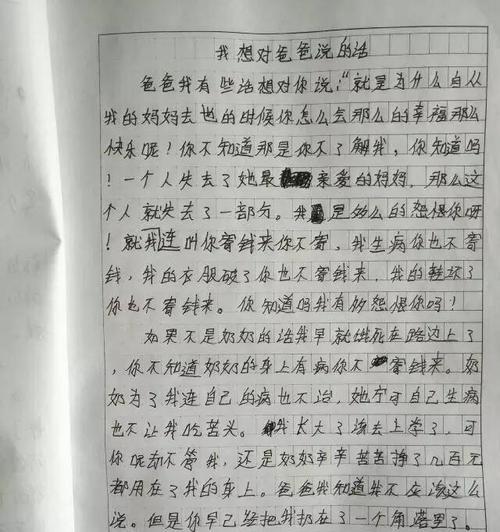 我想对爸爸说的话
爸爸我有些话想对你说："就是为什么自从
我的妈妈去世的时候你怎么会那么的幸福那么
快乐呢！你不知道那是你不了解我，你知道吗
！一个人失去了她最亲爱的妈妈，那么这
个人就失去了一部分。我是多么的怨恨你呀
！就我连叫你寄钱来你不寄，我生病你也不寄
钱，我的衣服破了你也不寄钱来，我的鞋坏了
你也不寄钱来。你知道吗我有多怨恨你吗！
如果不是奶奶的话我早就饿死在路边上了
，你不知道奶奶的身上有病你不寄钱来。奶
奶为了我连自己的病也不治，她宁可自己生病
也不让我吃苦头。我长大了该去上学了，可
你呢却不管我，还是奶奶辛辛苦苦挣了几百元
都用在了我的身上。爸爸我知道我不应该这么
说。但是你早已经把我扔在了一个角落里了。